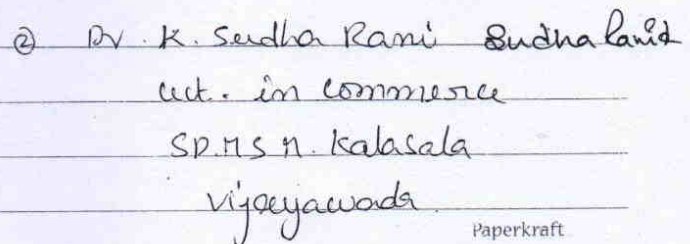 ② Dr. K. Sudha Rani Sudha Rani K
Lect. in commerce
S.D.M.S.M. Kalasala
Vijayawada
Paperkraft